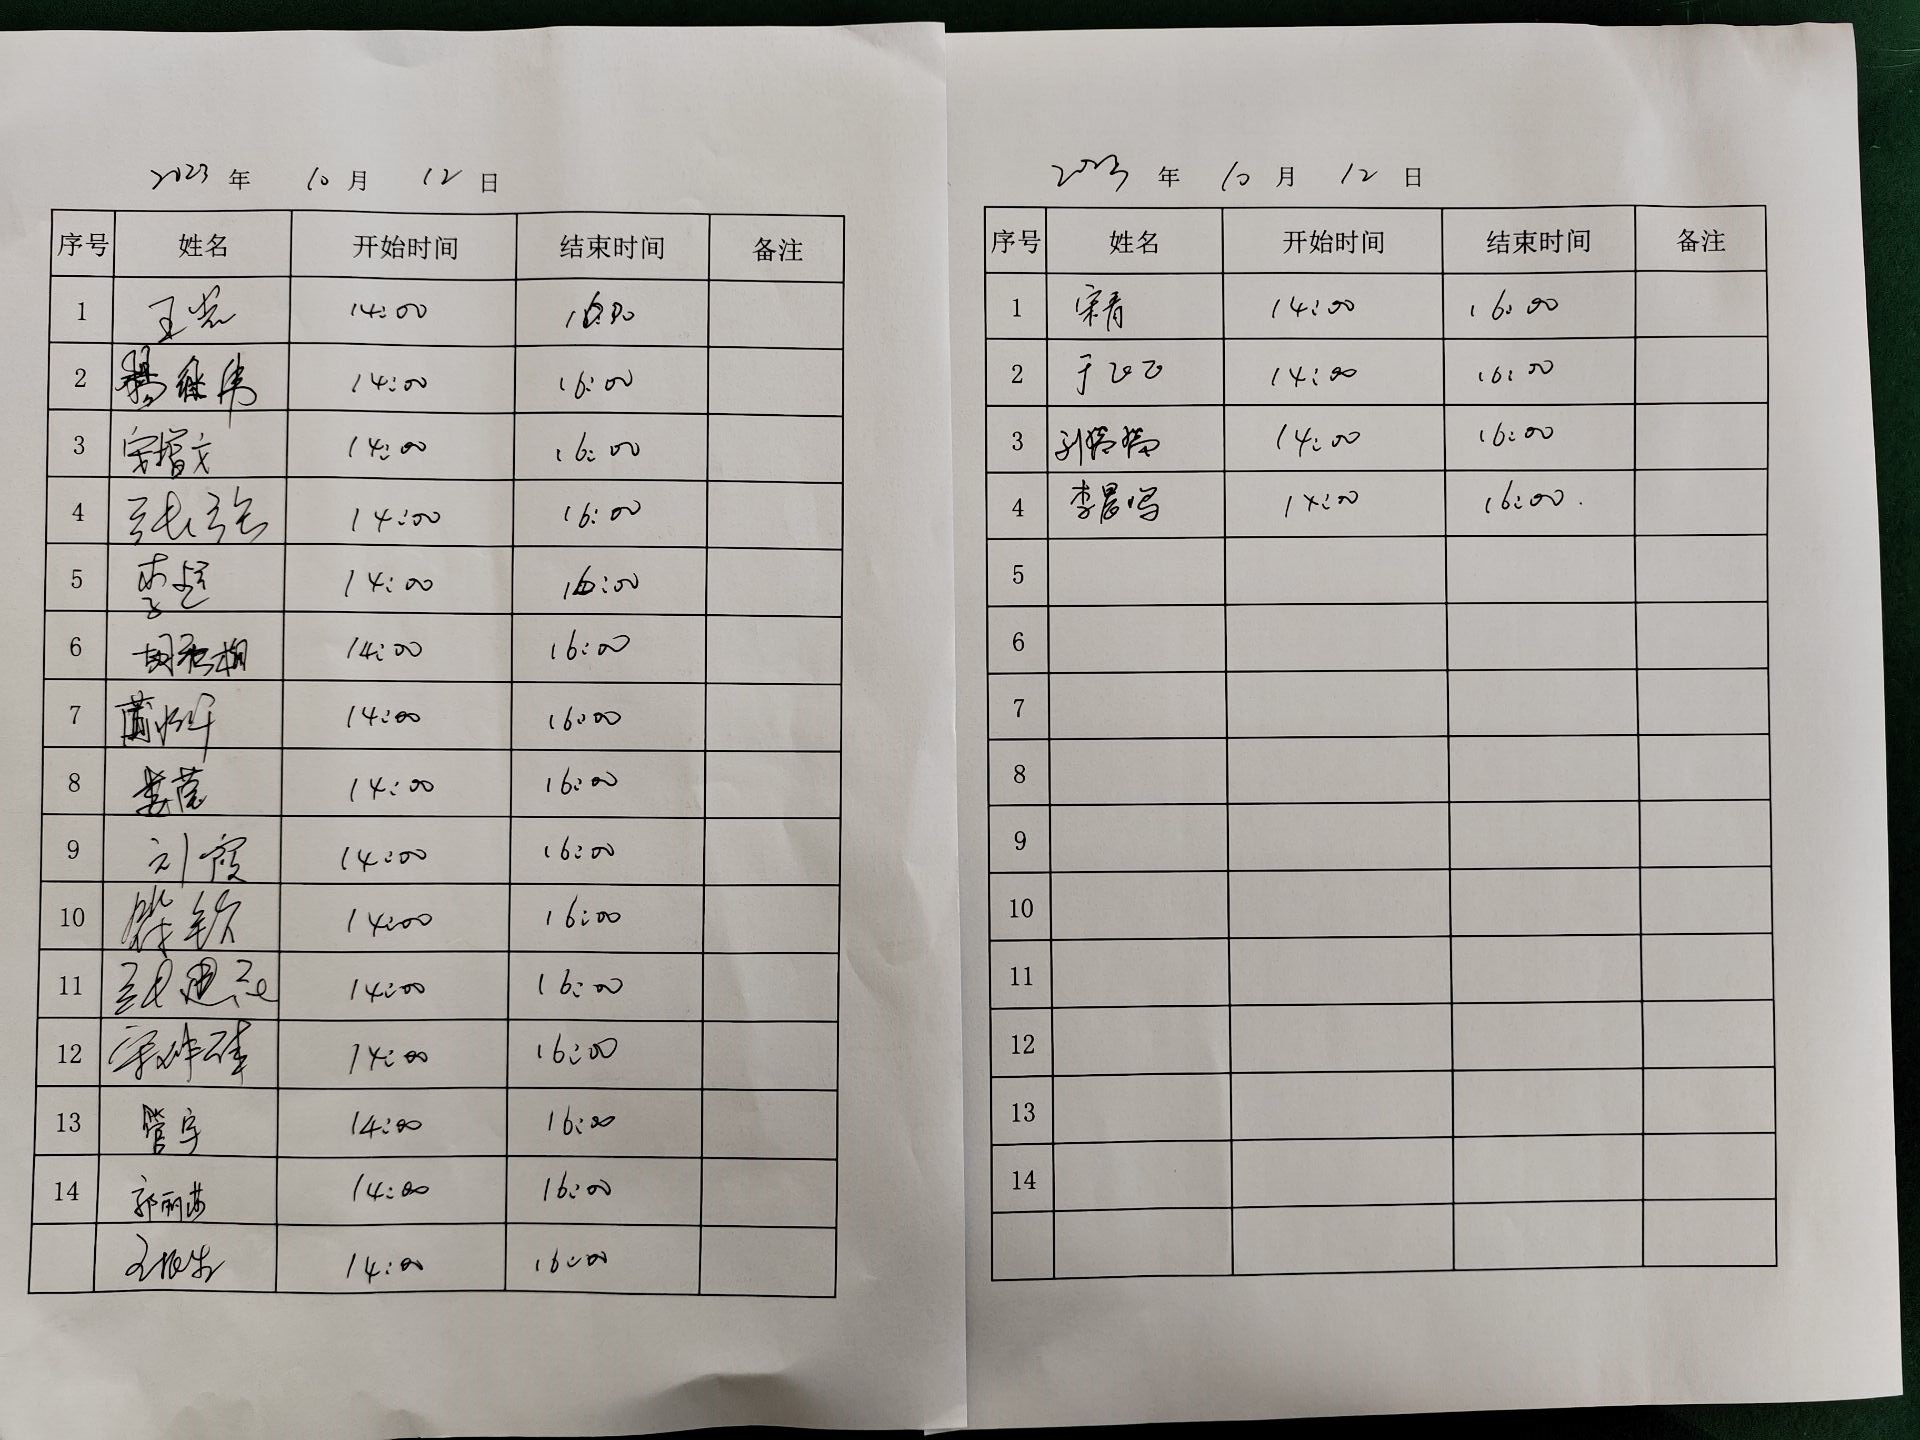 2023 年 10 月 12 日
序号 姓名 开始时间 结束时间 备注
1 14:00 16:00
2 杨继伟 14:00 16:00
3 宋增文 14:00 16:00
4 张强 14:00 16:00
5 14:00 16:00
6 14:00 16:00
7 14:00 16:00
8 14:00 16:00
9 刘霞 14:00 16:00
10 14:00 16:00
11 14:00 16:00
12 14:00 16:00
13 管宇 14:00 16:00
14 郭丽莎 14:00 16:00
14:00 16:00
2023 年 10 月 12 日
序号 姓名 开始时间 结束时间 备注
1 宋青 14:00 16:00
2 于 14:00 16:00
3 刘 14:00 16:00
4 李晨鸣 14:00 16:00
5
6
7
8
9
10
11
12
13
14